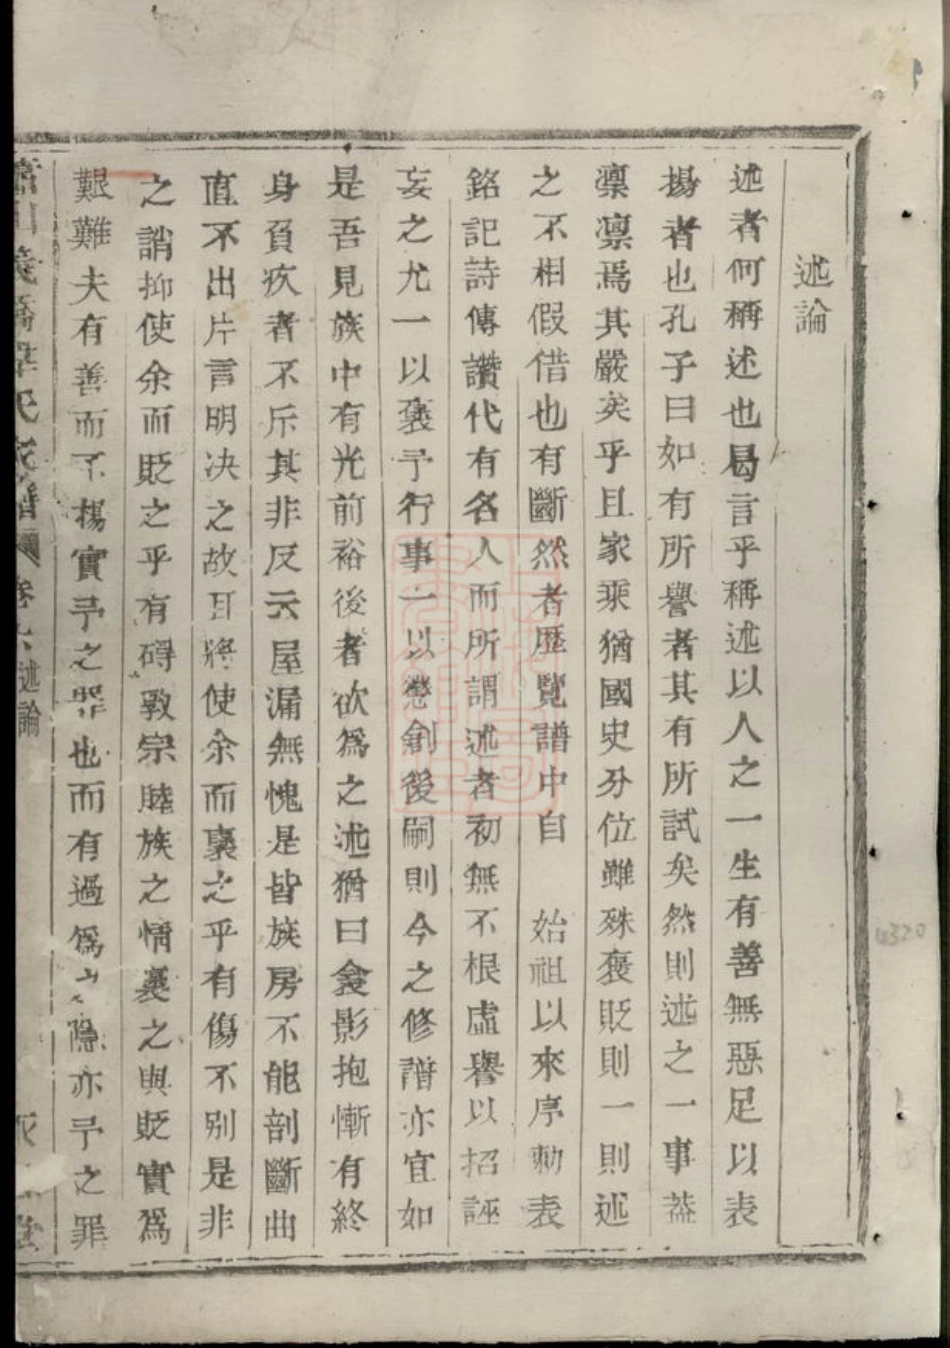 述論
述者何稱述也曷言乎稱述以人之一生有善無惡足以表
揚者也孔子曰如有所譽者其有所試矣然則述之一事蓋
凛凛焉其嚴矣乎且家乘猶國史分位雖殊褒貶則一則述
之不相假借也有斷然者歷覽譜中自 始祖以來序勅表
銘記詩傳讚代有名人而所謂述者初無不根虛譽以招誣
妄之尤一以褒予行事一以懲創後嗣則今之修譜亦宜如
是吾見族中有光前裕後者欲爲之述猶曰衾影抱慚有終
身負疚者不斥其非反云屋漏無愧是皆族房不能剖斷曲
直不出片言明决之故耳將使余而襃之乎有傷不别是非
之誚抑使余而貶之乎有碍敦宗睦族之情襃之與貶實爲
艱難夫有善而不揚實予之罪也而有過爲之隱亦予之罪
氏家譜 述論